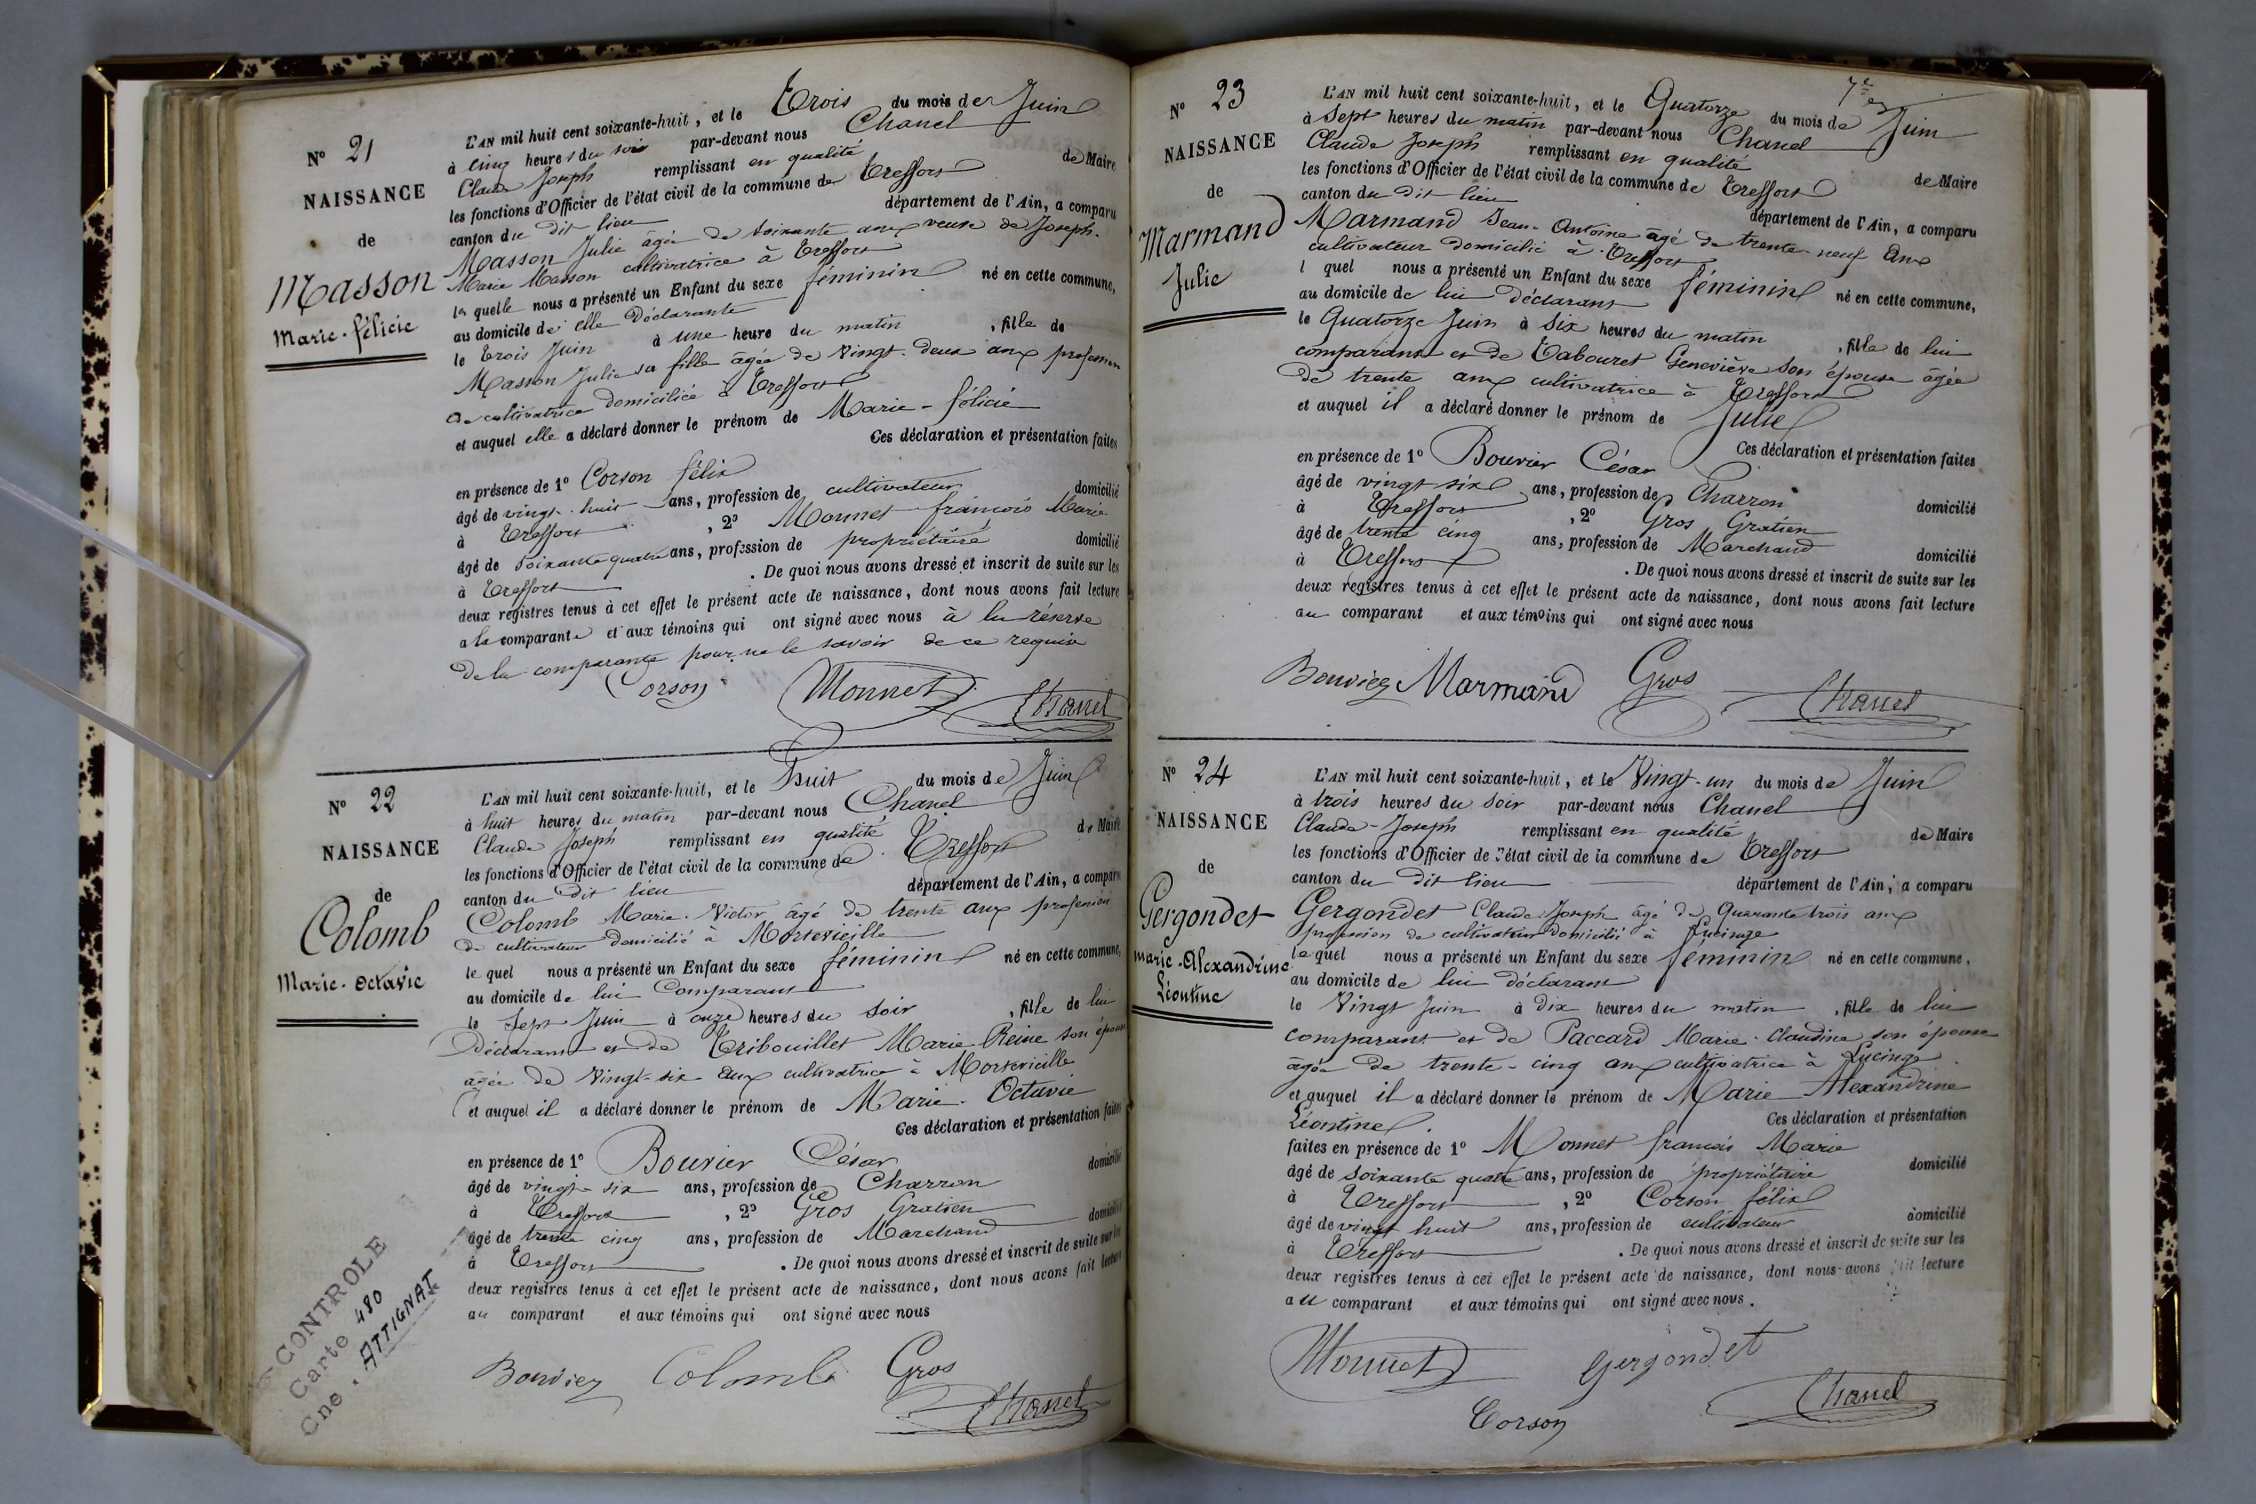 N° 21
NAISSANCE
de
Masson
Marie-félicie
L'AN mil huit cent soixante-huit, et le Trois du mois de Juin
à cinq heures du soir par-devant nous Chanel
Claude Joseph remplissant en qualité de Maire
les fonctions d'Officier de l'état civil de la commune de Treffort
canton du dit lieu département de l'Ain, a comparu
Masson Julie âgée de soixante ans veuve de Joseph-
Marie Masson cultivatrice à Treffort
la quelle nous a présenté un Enfant du sexe féminin né en cette commune,
au domicile de elle Déclarante
le trois Juin à une heure du matin , fille de
Masson Julie sa fille âgée de Vingt-deux ans profession
de cultivatrice domiciliée à Treffort
et auquel elle a déclaré donner le prénom de Marie-félicie
Ces déclaration et présentation faites
en présence de 1° Corson félix
âgé de vingt-huit ans, profession de cultivateur domicilié
à Treffort , 2° Monnet françois Marie
âgé de soixante quatre ans, profession de propriétaire domicilié
à Treffort . De quoi nous avons dressé et inscrit de suite sur les
deux registres tenus à cet effet le présent acte de naissance, dont nous avons fait lecture
a la comparante et aux témoins qui ont signé avec nous à la réserve
de la comparante pour ne le savoir de ce requise
Corson Monnet Chanel
N° 22
NAISSANCE
de
Colomb
Marie-Octavie
L'AN mil huit cent soixante-huit, et le Huit du mois de Juin
à huit heures du matin par-devant nous Chanel
Claude Joseph remplissant en qualité de Maire
les fonctions d'Officier de l'état civil de la commune de Treffort
canton du dit lieu département de l'Ain, a comparu
Colomb Marie-Victor âgé de trente ans profession
de cultivateur domicilié à Mortevieille
le quel nous a présenté un Enfant du sexe féminin né en cette commune,
au domicile de lui Comparant
le Sept Juin à onze heures du soir , fille de lui
Déclarant et de Tribouillet Marie Reine son épouse
âgée de Vingt-six ans cultivatrice à Mortevieille
et auquel il a déclaré donner le prénom de Marie-Octavie
Ces déclaration et présentation faites
en présence de 1° Bouvier César domicilié
âgé de vingt-six ans, profession de Charron
à Treffort , 2° Gros Gratien
âgé de trente cinq ans, profession de Marchand domicilié
à Treffort . De quoi nous avons dressé et inscrit de suite sur les
deux registres tenus à cet effet le présent acte de naissance, dont nous avons fait lecture
au comparant et aux témoins qui ont signé avec nous
Bouvier Colomb Gros
Chanel
CONTROLE
Carte 480
Cne . ATTIGNAT
7e
N° 23
NAISSANCE
de
Marmand
Julie
L'AN mil huit cent soixante-huit, et le Quatorze du mois de Juin
à Sept heures du matin par-devant nous Chanel
Claude Joseph remplissant en qualité de Maire
les fonctions d'Officier de l'état civil de la commune de Treffort
canton du dit lieu département de l'Ain, a comparu
Marmand Jean-Antoine âgé de trente-neuf ans
cultivateur domicilié à Treffort
l quel nous a présenté un Enfant du sexe féminin né en cette commune,
au domicile de lui déclarant
le Quatorze Juin à Six heures du matin , fille de lui
comparant et de Tabouret Geneviève son épouse âgée
de trente ans cultivatrice à Treffort
et auquel il a déclaré donner le prénom de Julie
Ces déclaration et présentation faites
en présence de 1° Bouvier César
âgé de vingt six ans, profession de Charron domicilié
à Treffort , 2° Gros Gratien
âgé de trente cinq ans, profession de Marchand domicilié
à Treffort . De quoi nous avons dressé et inscrit de suite sur les
deux registres tenus à cet effet le présent acte de naissance, dont nous avons fait lecture
au comparant et aux témoins qui ont signé avec nous
Bouvier Marmand Gros Chanel
N° 24
NAISSANCE
de
Gergondet
marie-Alexandrine
Léontine
L'AN mil huit cent soixante-huit, et le Vingt-un du mois de Juin
à trois heures du soir par-devant nous Chanel
Claude-Joseph remplissant en qualité de Maire
les fonctions d'Officier de l'état civil de la commune de Treffort
canton du dit lieu département de l'Ain, a comparu
Gergondet Claude Joseph âgé de Quarante trois ans
profession de cultivateur domicilié à Lucinge
le quel nous a présenté un Enfant du sexe féminin né en cette commune,
au domicile de lui déclarant
le Vingt Juin à Dix heures du matin , fille de lui
comparant et de Paccard Marie-Claudine son épouse
âgée de trente-cinq ans cultivatrice à Lucinge
et auquel il a déclaré donner le prénom de Marie Alexandrine
Léontine. Ces déclaration et présentation
faites en présence de 1° Monnet francois Marie
âgé de soixante quatre ans, profession de propriétaire domicilié
à Treffort , 2° Corson félix
âgé de vingt huit ans, profession de cultivateur domicilié
à Treffort . De quoi nous avons dressé et inscrit de suite sur les
deux registres tenus à cet effet le présent acte de naissance, dont nous avons fait lecture
au comparant et aux témoins qui ont signé avec nous.
Monnet Gergondet
Corson Chanel